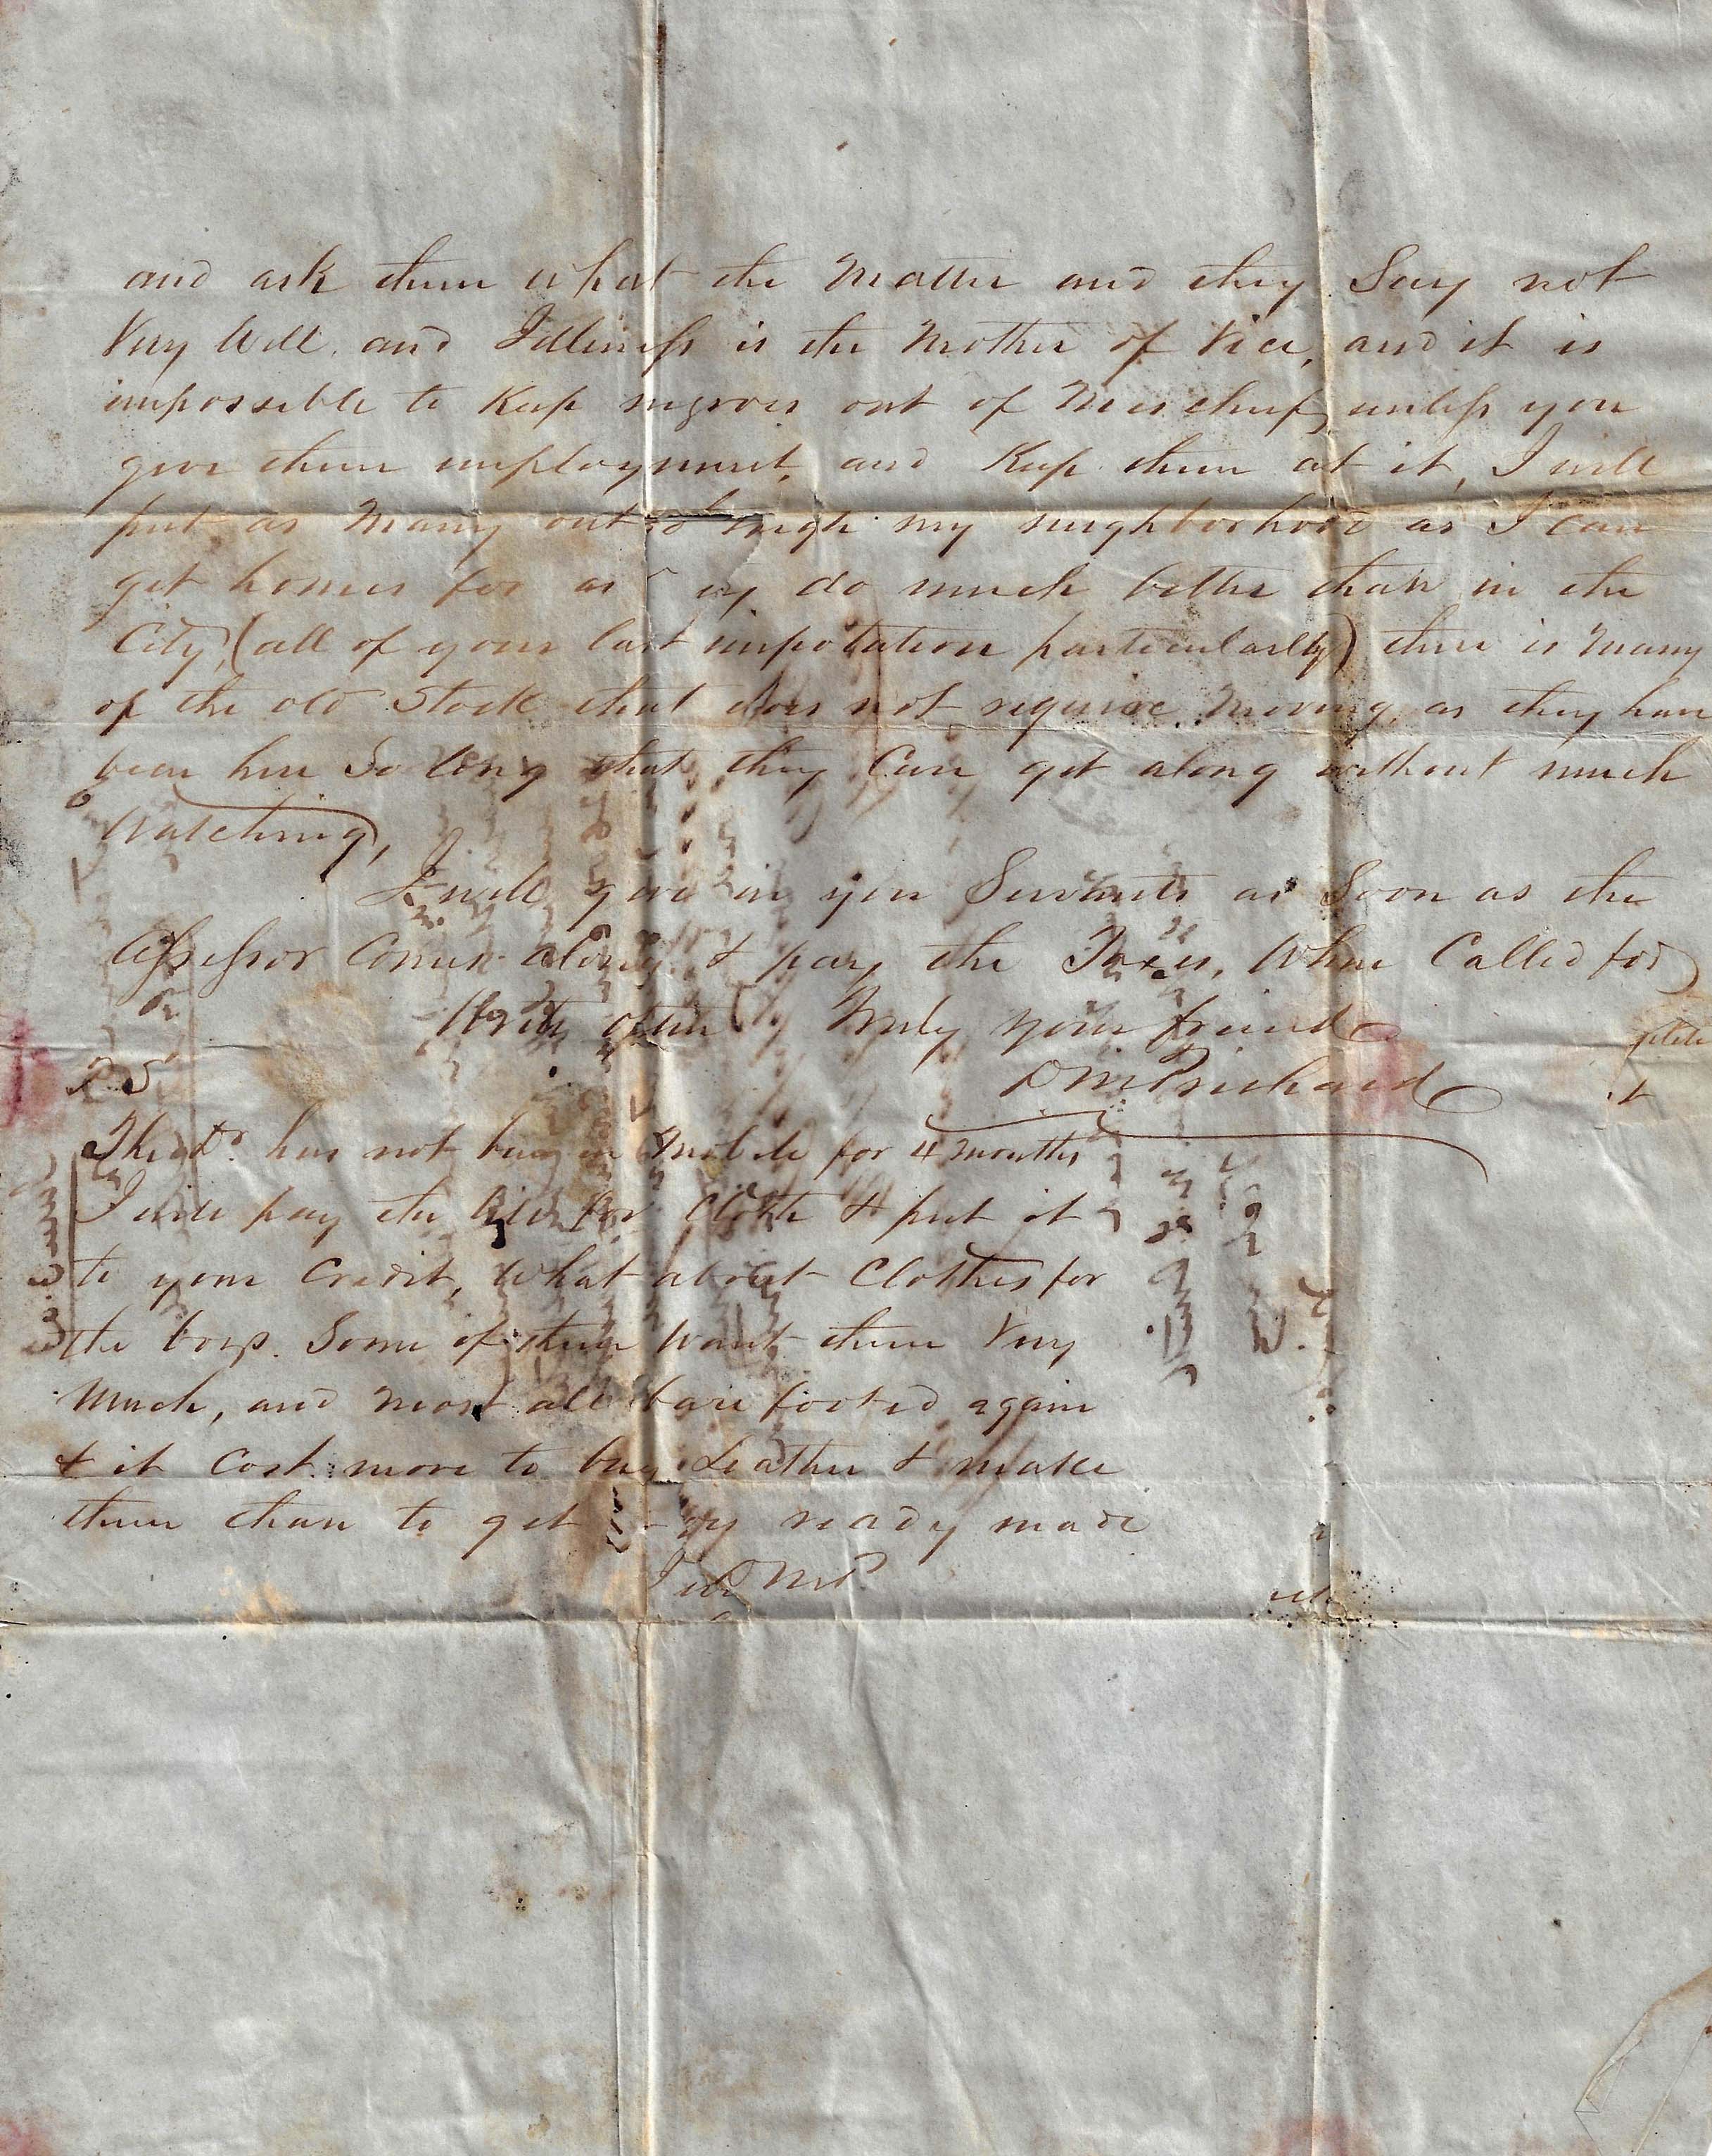 and ask them what the Matter and they Say not
Very Well, and Idleness is the Mother of Vice, and it is
impossible to Keep negroes out of Mischief, unless you
give them employment, and Keep them at it, I will
put as Many out through my neighborhood as I can
get homes for as ey do much better than in the
City, (all of your last impotation particularlly) there is Many
of the old Stock that does not require Moving, as they have
been here So long that they Can get along without much
Watching,
I will give in you Servants as Soon as the
Assessor Comes along & pay the Taxes, When Called for
Write often Truly your friend
D M Prichard
P S
The Dr. has not been in Mobile for 4 Months
I will pay the Bill for Cloth & put it
to your Credit, What about Clothes for
the boys. Some of them Want them Very
Much, and Most all bare footed again
& it Cost more to buy Leather & make
them than to get ready made
D M P